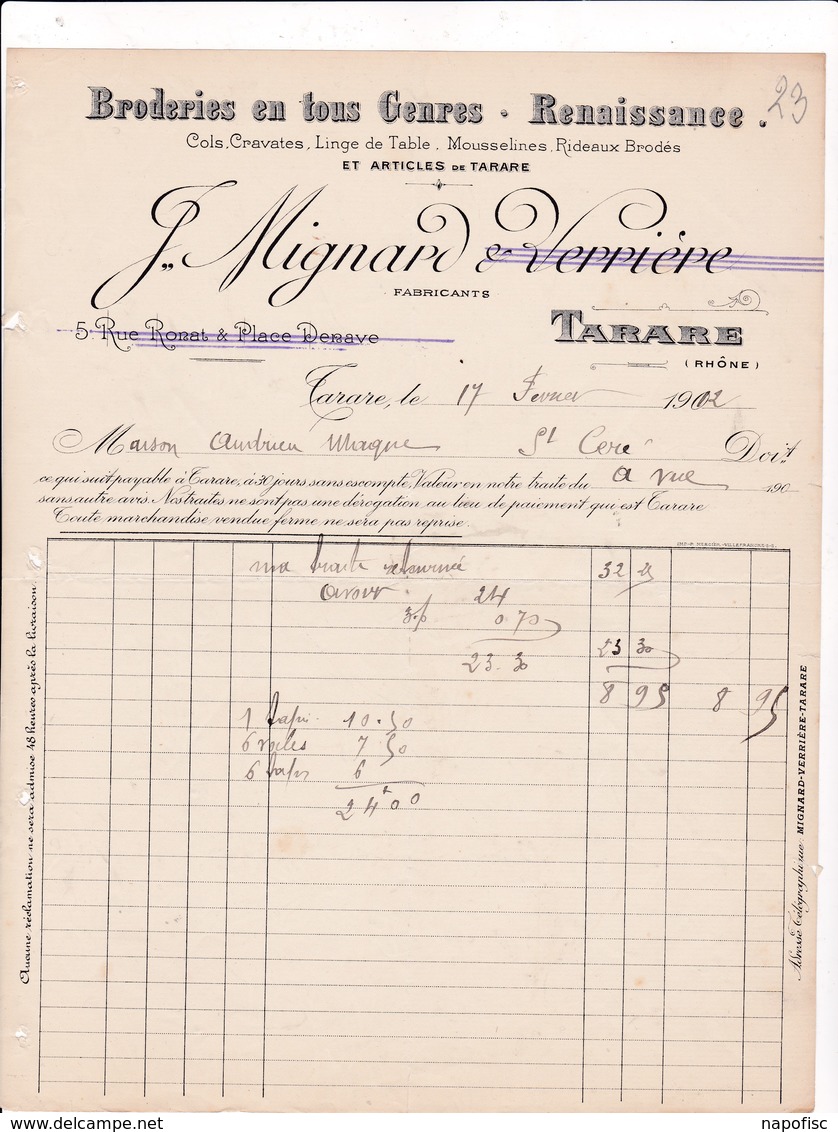 23
Broderies en tous Genres - Renaissance.
Cols, Cravates, Linge de Table, Mousselines, Rideaux Brodés
ET ARTICLES DE TARARE
J. Mignard & Verrière
FABRICANTS
5. Rue Ronat & Place Denave
TARARE
(RHÔNE)
Tarare, le 17 Fevrier 1902
Maison Andrieu St Ceré Doit
ce qui suit payable à Tarare, à 30 jours sans escompte, Valeur en notre traite du a vue 190
sans autre avis. Nos traites ne sont pas une dérogation au lieu de paiement qui est Tarare
Toute marchandise vendue ferme ne sera pas reprise.
ma traite retournée 32 25
avoir 24
3% 0 70
23.30 23 30
8 95 8 95
1 10.50
6 voiles 7 50
6 6
24,00
Aucune réclamation ne sera admise 48 heures après la livraison.
Adresse Télégraphique: MIGNARD-VERRIÈRE-TARARE
delcampe.net
napofisc